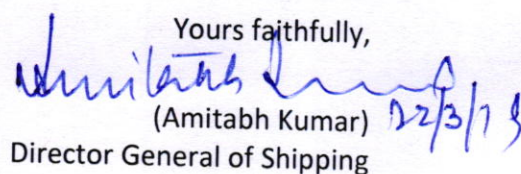 Yours faithfully,
Amitabh Kumar
(Amitabh Kumar) 22/3/19
Director General of Shipping